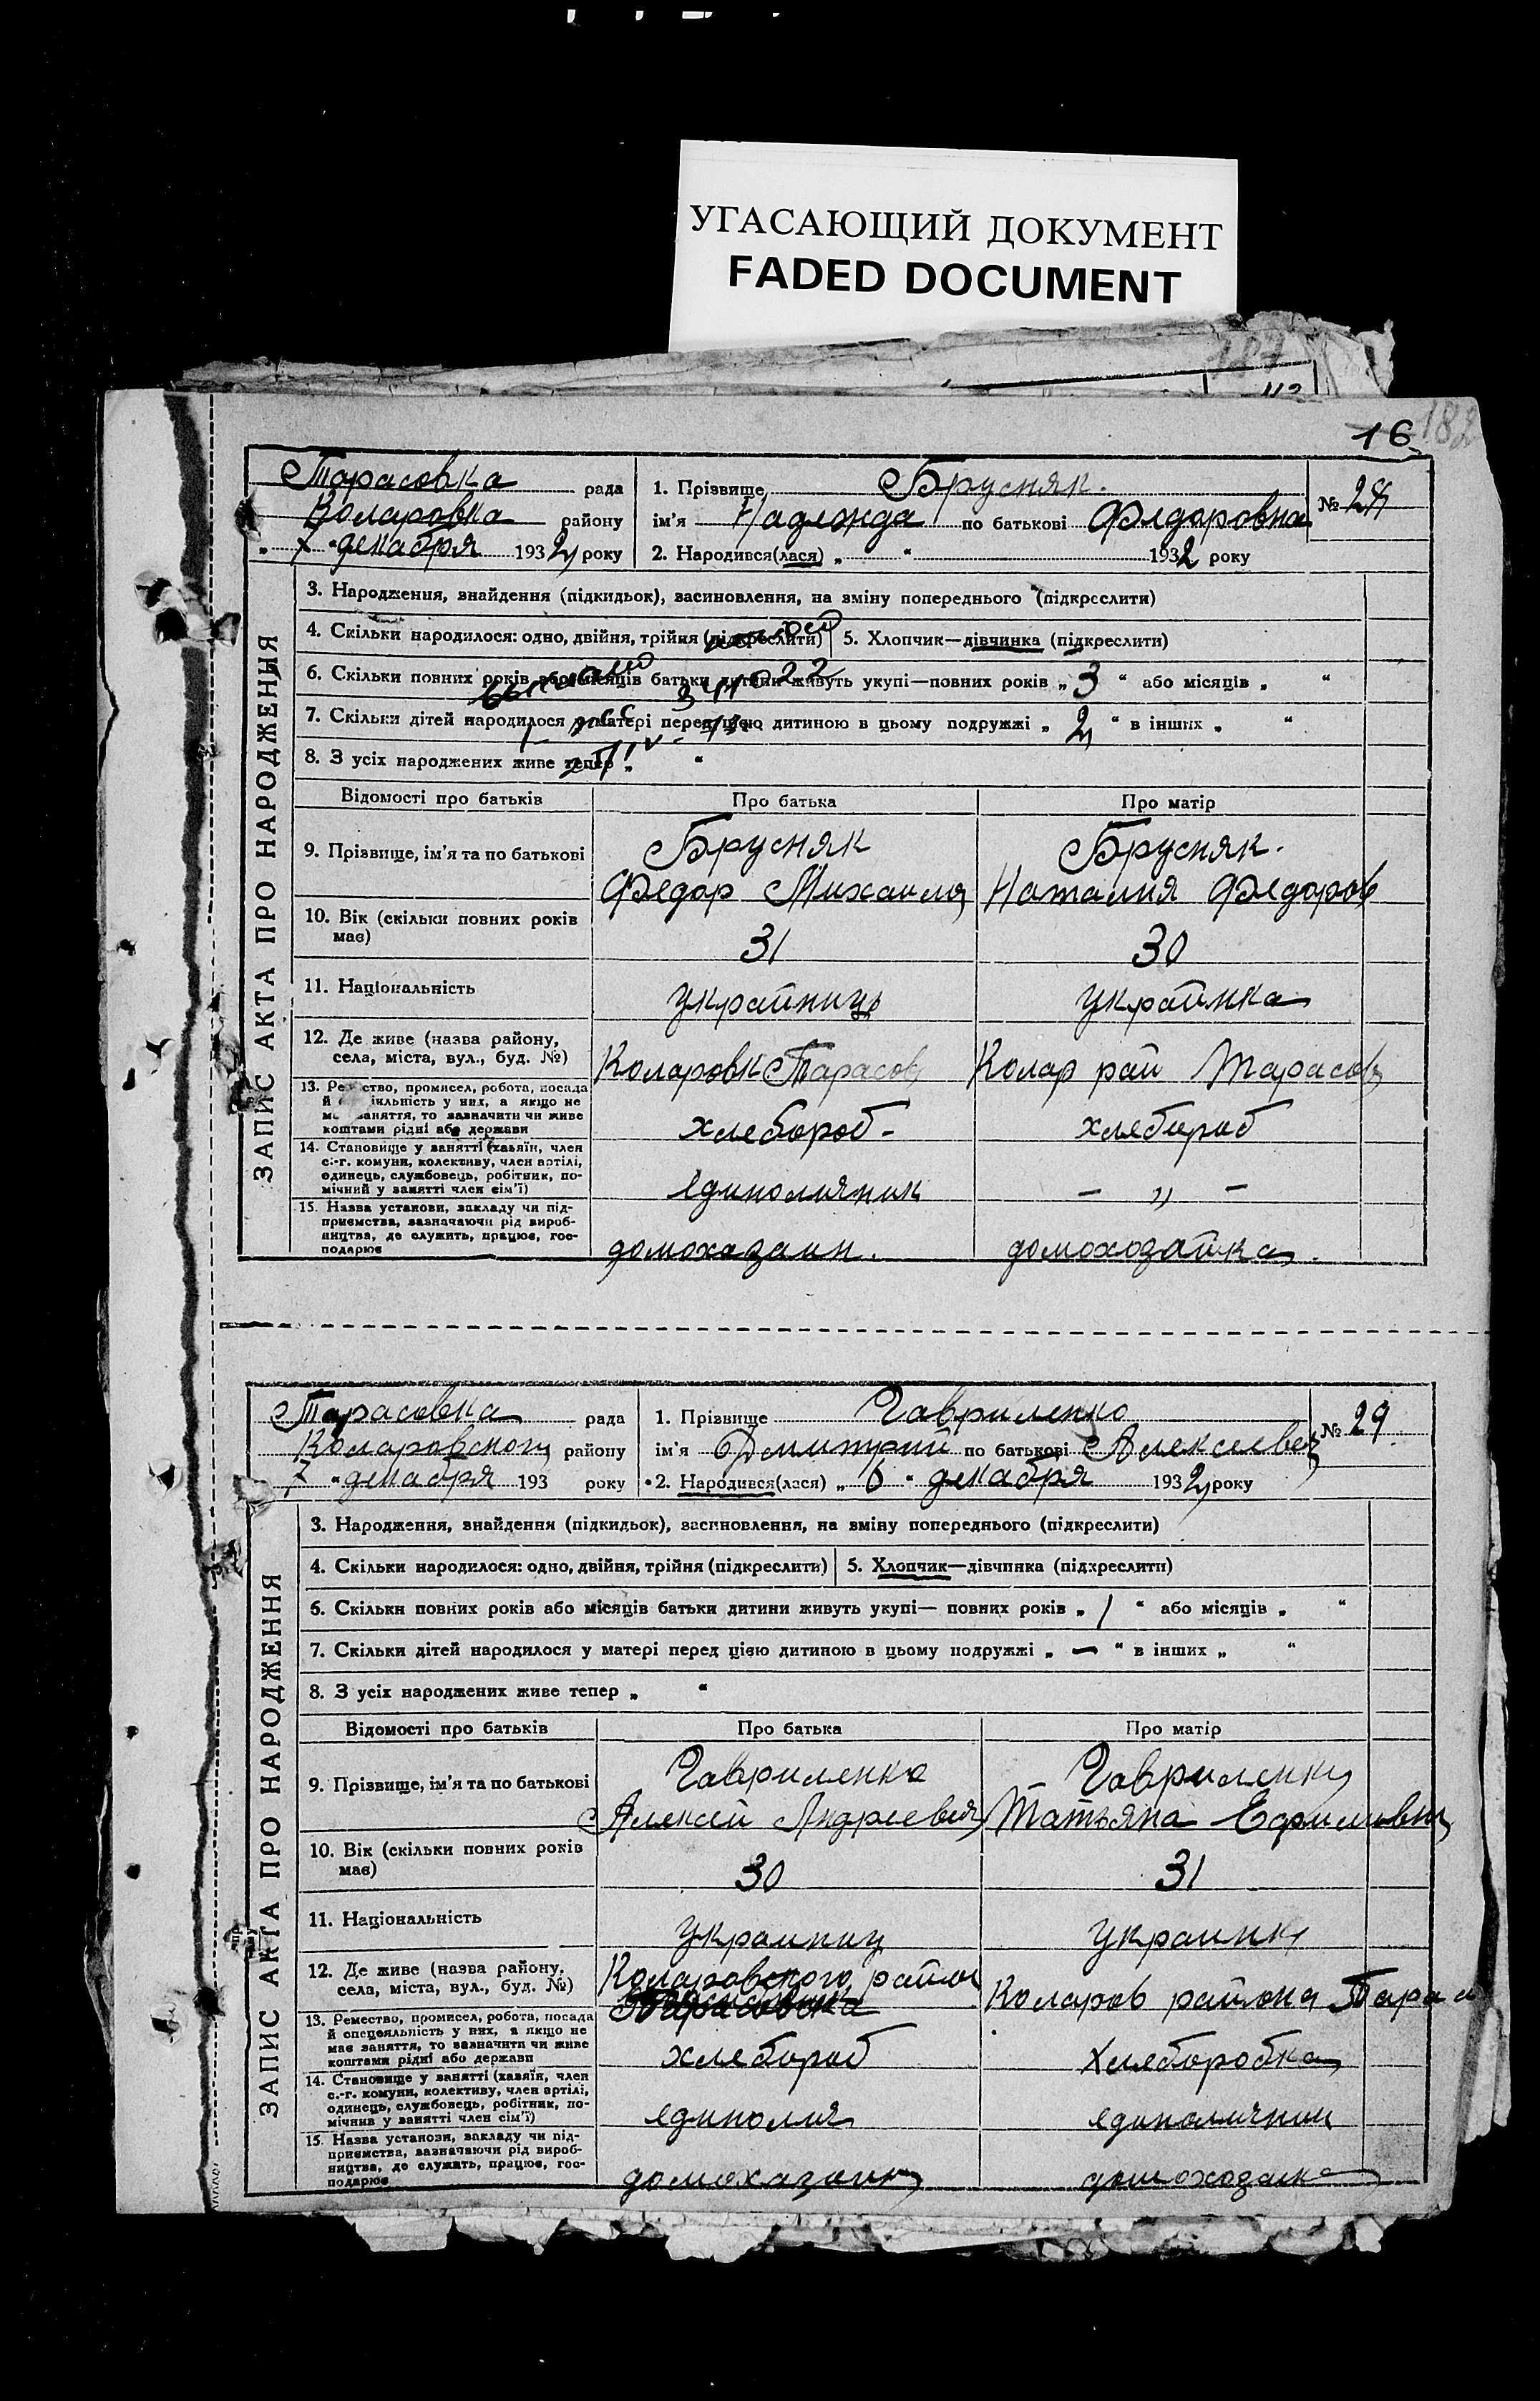 УГАСАЮЩИЙ ДОКУМЕНТ
FADED DOCUMENT
187
16 182
Тарасовка рада
Коларовка району
„ 7 “ декабря 1932 року
1. Прізвище Брусняк.
ім'я Надежда по батькові Федоровна
2. Народився(лася) „ “ 1932 року
№ 28
ЗАПИС АКТА ПРО НАРОДЖЕННЯ
3. Народження, знайдення (підкидьок), засиновлення, на зміну попереднього (підкреслити)
4. Скільки народилося: одно, двійня, трійня (підкреслити) 5. Хлопчик—дівчинка (підкреслити)
6. Скільки повних років або місяців батьки дитини живуть укупі—повних років „ 3 “ або місяців „ “
7. Скільки дітей народилося у матері перед цією дитиною в цьому подружжі „ 2 “ в інших „ “
8. З усіх народжених живе тепер „ “
Відомості про батьків Про батька Про матір
9. Прізвище, ім'я та по батькові
Брусняк Брусняк.
Федор Михаиля Наталия Федоров
10. Вік (скільки повних років має) 31 30
11. Національність украйниць украйнка
12. Де живе (назва району, села, міста, вул., буд. №) Коларовк Тарасов Колар рай Тарасов
13. Ремество, промисел, робота, посада й спеціяльність у них, а якщо не має заняття, то зазначити чи живе коштами рідні або держави
хлебороб- хлебороб
14. Становище у занятті (хазяїн, член с.-г. комуни, колективу, член артілі, одинець, службовець, робітник, помічний у занятті член сім'ї)
единоличник — „ —
15. Назва установи, закладу чи підприємства, зазначаючи рід виробництва, де служить, працює, господарює
домохазаин. домохозайка.
Тарасовка рада
Коларовского району
7 “ декабря 193 року
1. Прізвище Гавриленко
ім'я Дмитрий по батькові Алексеевич
2. Народився(лася) „ 6 “ декабря 1932 року
№ 29.
ЗАПИС АКТА ПРО НАРОДЖЕННЯ
3. Народження, знайдення (підкидьок), засиновлення, на зміну попереднього (підкреслити)
4. Скільки народилося: одно, двійня, трійня (підкреслити) 5. Хлопчик—дівчинка (підкреслити)
6. Скільки повних років або місяців батьки дитини живуть укупі— повних років „ 1 “ або місяців „ “
7. Скільки дітей народилося у матері перед цією дитиною в цьому подружжі „ — “ в інших „ “
8. З усіх народжених живе тепер „ “
Відомості про батьків Про батька Про матір
9. Прізвище, ім'я та по батькові
Гавриленко Гавриленко
Алексей Андреевич Татьяна Ефимивна
10. Вік (скільки повних років має) 30 31
11. Національність украиниц украинка
12. Де живе (назва району, села, міста, вул., буд. №)
Коларовского район Коларов района Тарас
Тарасовка
13. Ремество, промисел, робота, посада й спецеяльність у них, а якщо не має заняття, то зазначити чи живе коштами рідні або держави
хлебороб хлеборобка
14. Становище у занятті (хазяїн, член с.-г. комуни, колективу, член артілі, одинець, службовець, робітник, помічнив у занятті член сім'ї)
единолич единоличниц
15. Назва установи, закладу чи підприємства, зазначаючи рід виробництва, де служать, працює, господарює
домохазаин домохозаика